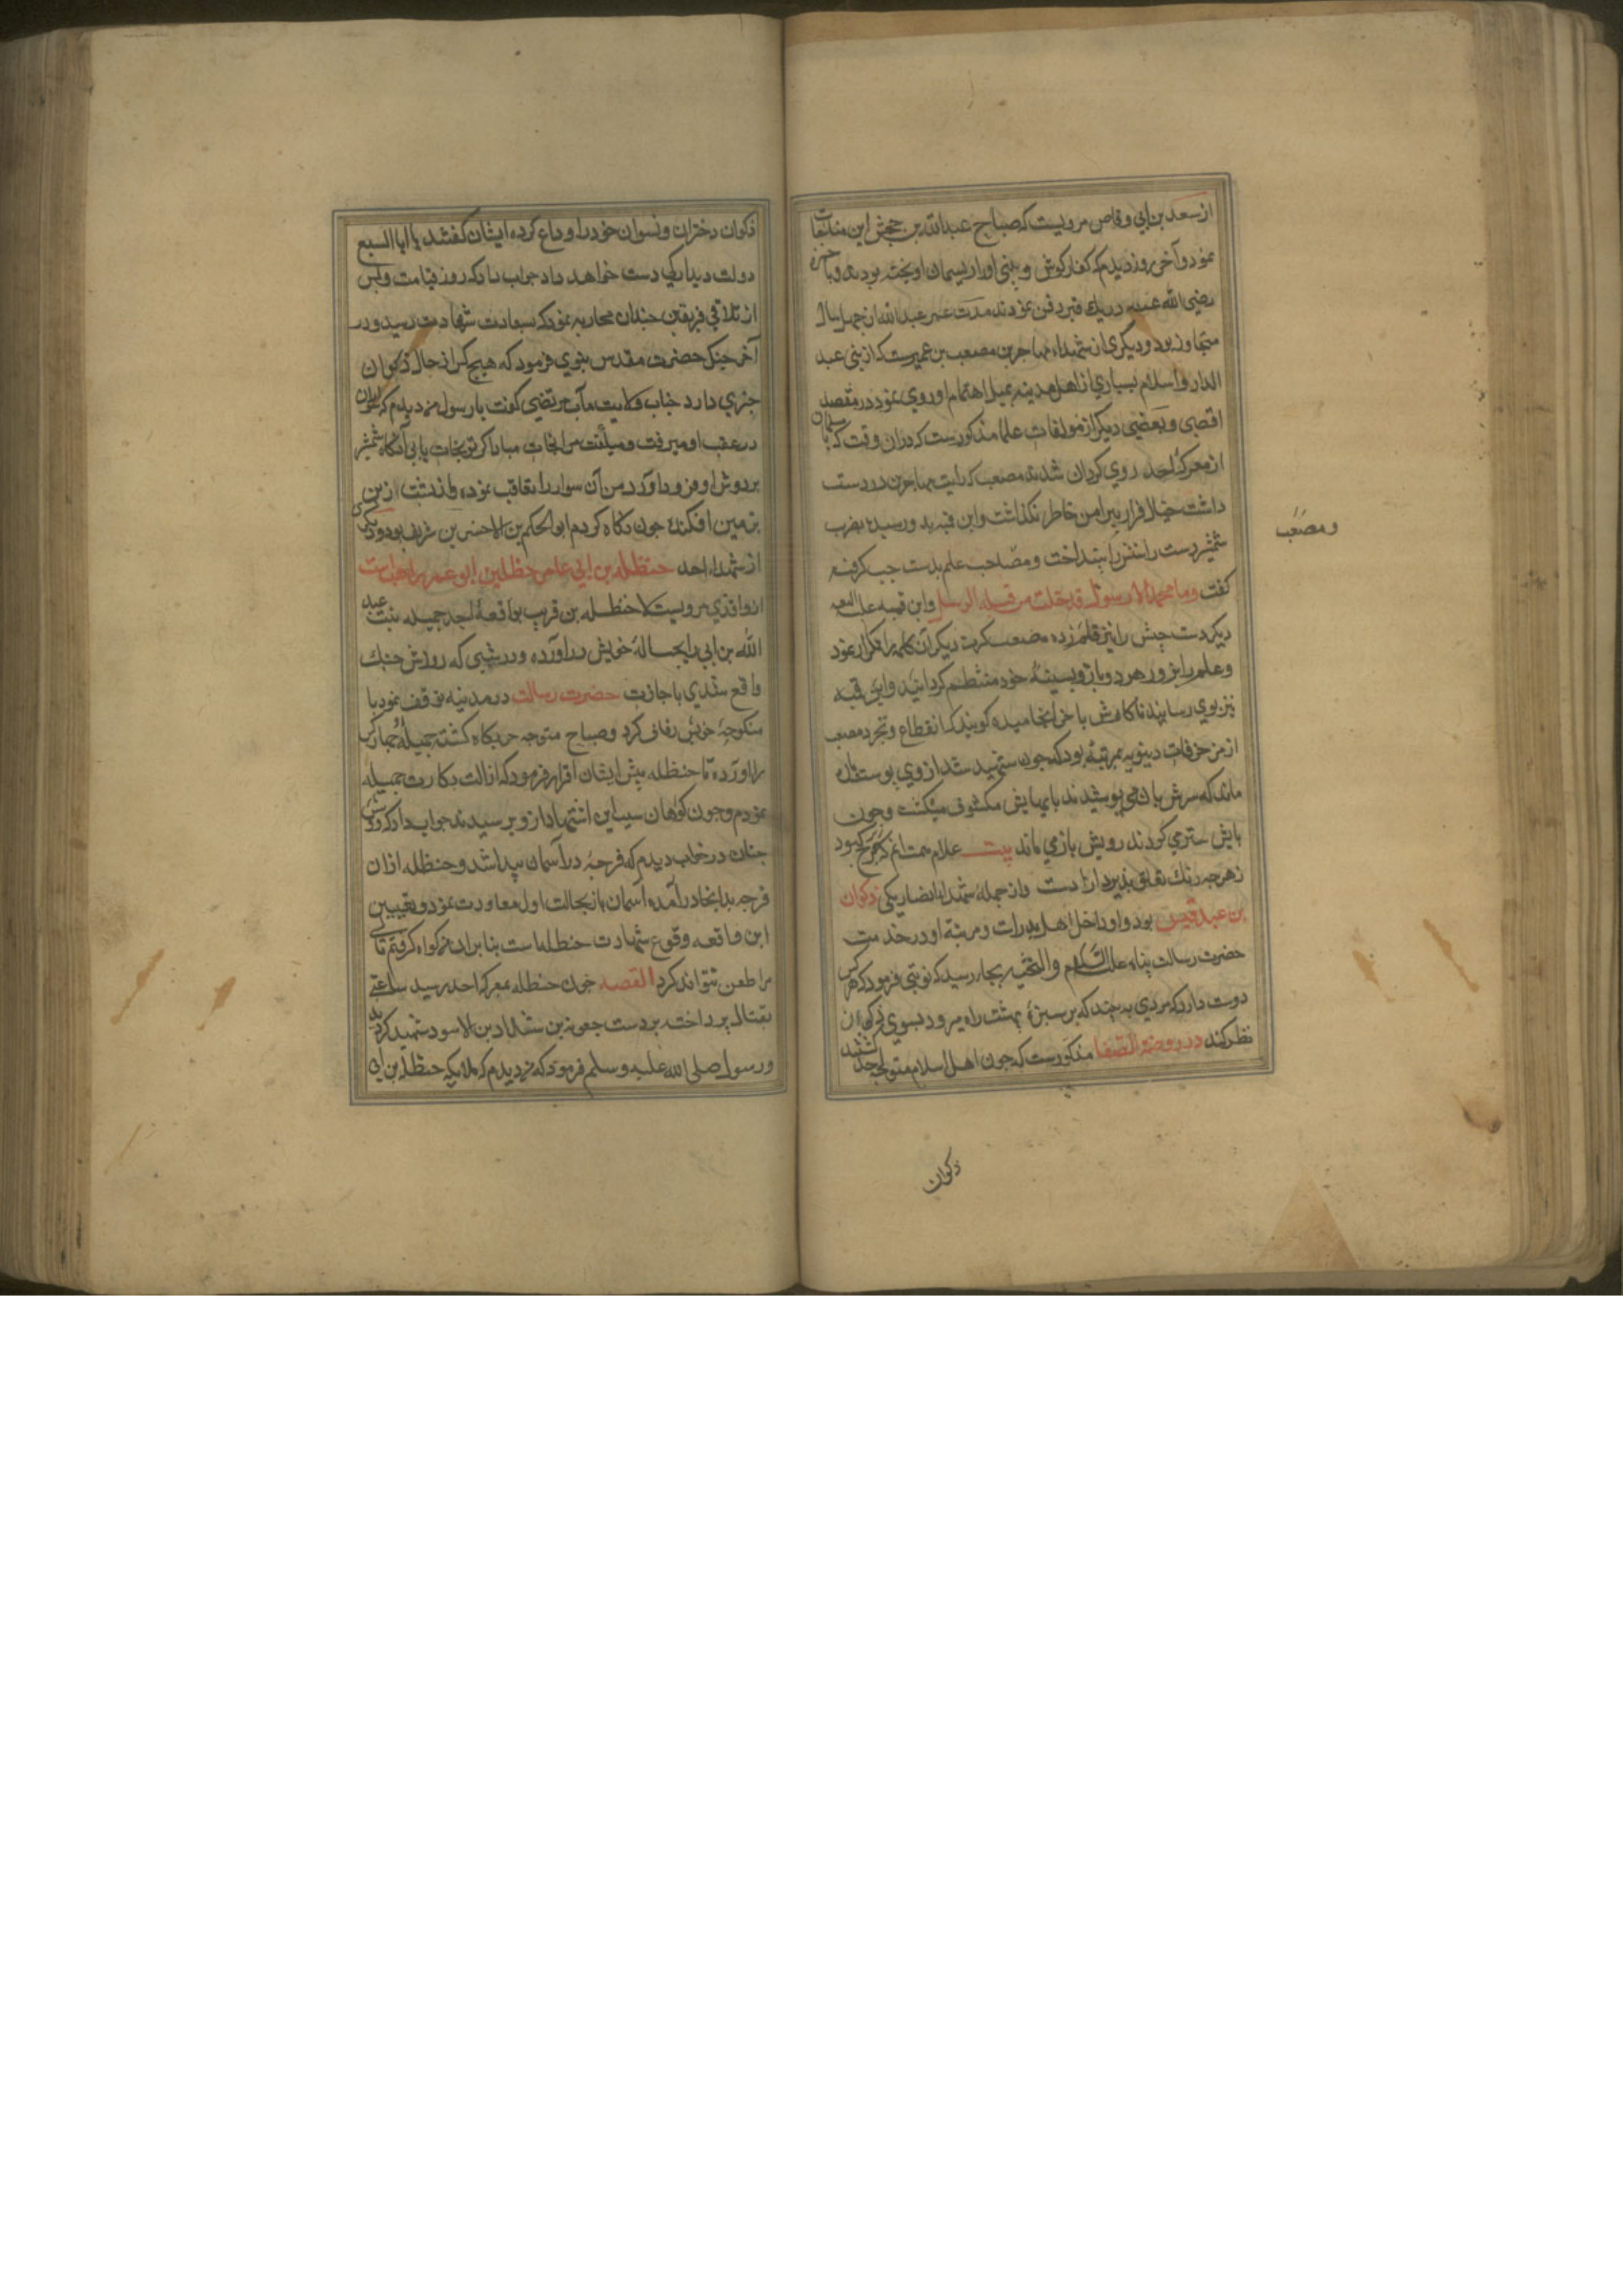 از سعد بن ابی وقاص مرویست که صباح عبدالله بن جحش این مناجات
نمود و آخر روز دیدم که کفار گوش و بینی او را در ریسمان آویخته بودند و با حمزه
رضی الله عنه در یک قبر دفن نمودند مدت عمر عبدالله از چهل سال
متجاوز بود و دیگری از شهداء مهاجرین مصعب بن عمیرست که از بنی عبد
الدار و اسلام بسیاری از اهل مدینه بمیل اهتمام او روی نمود در مقصد
اقصی و بعضی دیگر از مولفات علما مذکورست که در آن وقت که مسلمانان
از معرکه احد روی گردان شدند مصعب که رایت مهاجرین در دست
داشت خیال فرار پیرامن خاطر نگذاشت و ابن قمیه بدو رسیده بضرب
شمشیر دست راستش را بینداخت و مصاحب علم بدست چپ گرفته
گفت وما محمد الا رسول قد خلت من قبله الرسل و ابن قمیه علیه اللعنه
دیگر دست چپش را نیز قلم زده مصعب کرت دیگر آن کلمه را تکرار نمود
و علم را بزور هر دو بازو بسینهٔ خود منتظم گردانید و ابن قمیه
نیزه بوی رسانید تا کارش باخر انجامیده گویند که انقطاع و تجرد مصعب
از مزخرفات دنیویه بمرتبهٔ بود که چون شهید شد از وی پوستی
ماند که سرش بآن می پوشیدند پایهایش مکشوف میگشت و چون
پایش ستر می کردند رویش باز می ماند بیت غلام همت آنم که زیر چرخ کبود
زهر چه رنگ تعلق پذیرد آزادست و از جمله شهداء انصار یکی ذکوان
بن عبد قیس بود و او داخل اهل بدرات و مرتبهٔ او در خدمت
حضرت رسالت پناه علیه السلام والتحیه بجایی رسید که نوبتی فرمود که هر کس
دوست دارد که مردی به بیند که بر سبزهٔ بهشت راه میرود بسوی ذکوان
نظر کند در روضة الصفا مذکورست که چون اهل اسلام متوجه احد گشتند
ومصعب
ذکوان
ذکوان دختران و نسوان خود را وداع کرده ایشان گفتند یا ابا السبع
دولت دیدار کی دست خواهد داد جواب داد که روز قیامت و پس
از تلاقی فریقین چندان محاربه نمود که بسعادت شهادت رسید و در
آخر جنگ حضرت مقدس نبوی فرمود که هیچ کس از حال ذکوان
خبری دارد جناب ولایت مآب مرتضی گفت یا رسول من دیدم که سواری
در عقب او میرفت و میگفت مرا نجات مباد اگر تو نجات یابی آنگاه شمشیر
بر دوش او فرود آورد من آن سوار را تعاقب نموده و از پشت زین
بزمین افکندم چون نگاه کردم ابو الحکم بن الاخنس بن شریق بود و دیگری
از شهداء احد حنظله بن ابی عامر حنظله بن ابو عمر راهب است
از واقدی مرویست که حنظله بن قریب بواقعهٔ احد جمیله بنت عبد
الله بن ابی را بحبالهٔ خویش درآورده و در شبی که روزش جنگ
واقع شدی باجازت حضرت رسالت در مدینه توقف نمود با
منکوحهٔ خویش زفاف کرد و صباح متوجه حربگاه گشته جمیله چهار کس
را آورده تا حنظله پیش ایشان اقرار فرمود که ازالت بکارت جمیله
نمودم و چون گواهان سبب این اشتهاد ازو پرسیدند جواب داد که دوش
چنان در خواب دیدم که فرجهٔ در آسمان پیدا شد و حنظله از آن
فرجه بدانجا درآمده آسمان باز بحالت اول معاودت نمود و تعبیر
این واقعه وقوع شهادت حنظله است بنا بران گواه گرفتم تا کسی
مرا طعن نتواند کرد القصه چون حنظله بمعرکه احد رسید ساعتی
بقتال پرداخته بر دست جعونه بن شداد بن الاسود شهید گردید
و رسول صلی الله علیه وسلم فرمود که من دیدم که ملایکه حنظله بن ابی